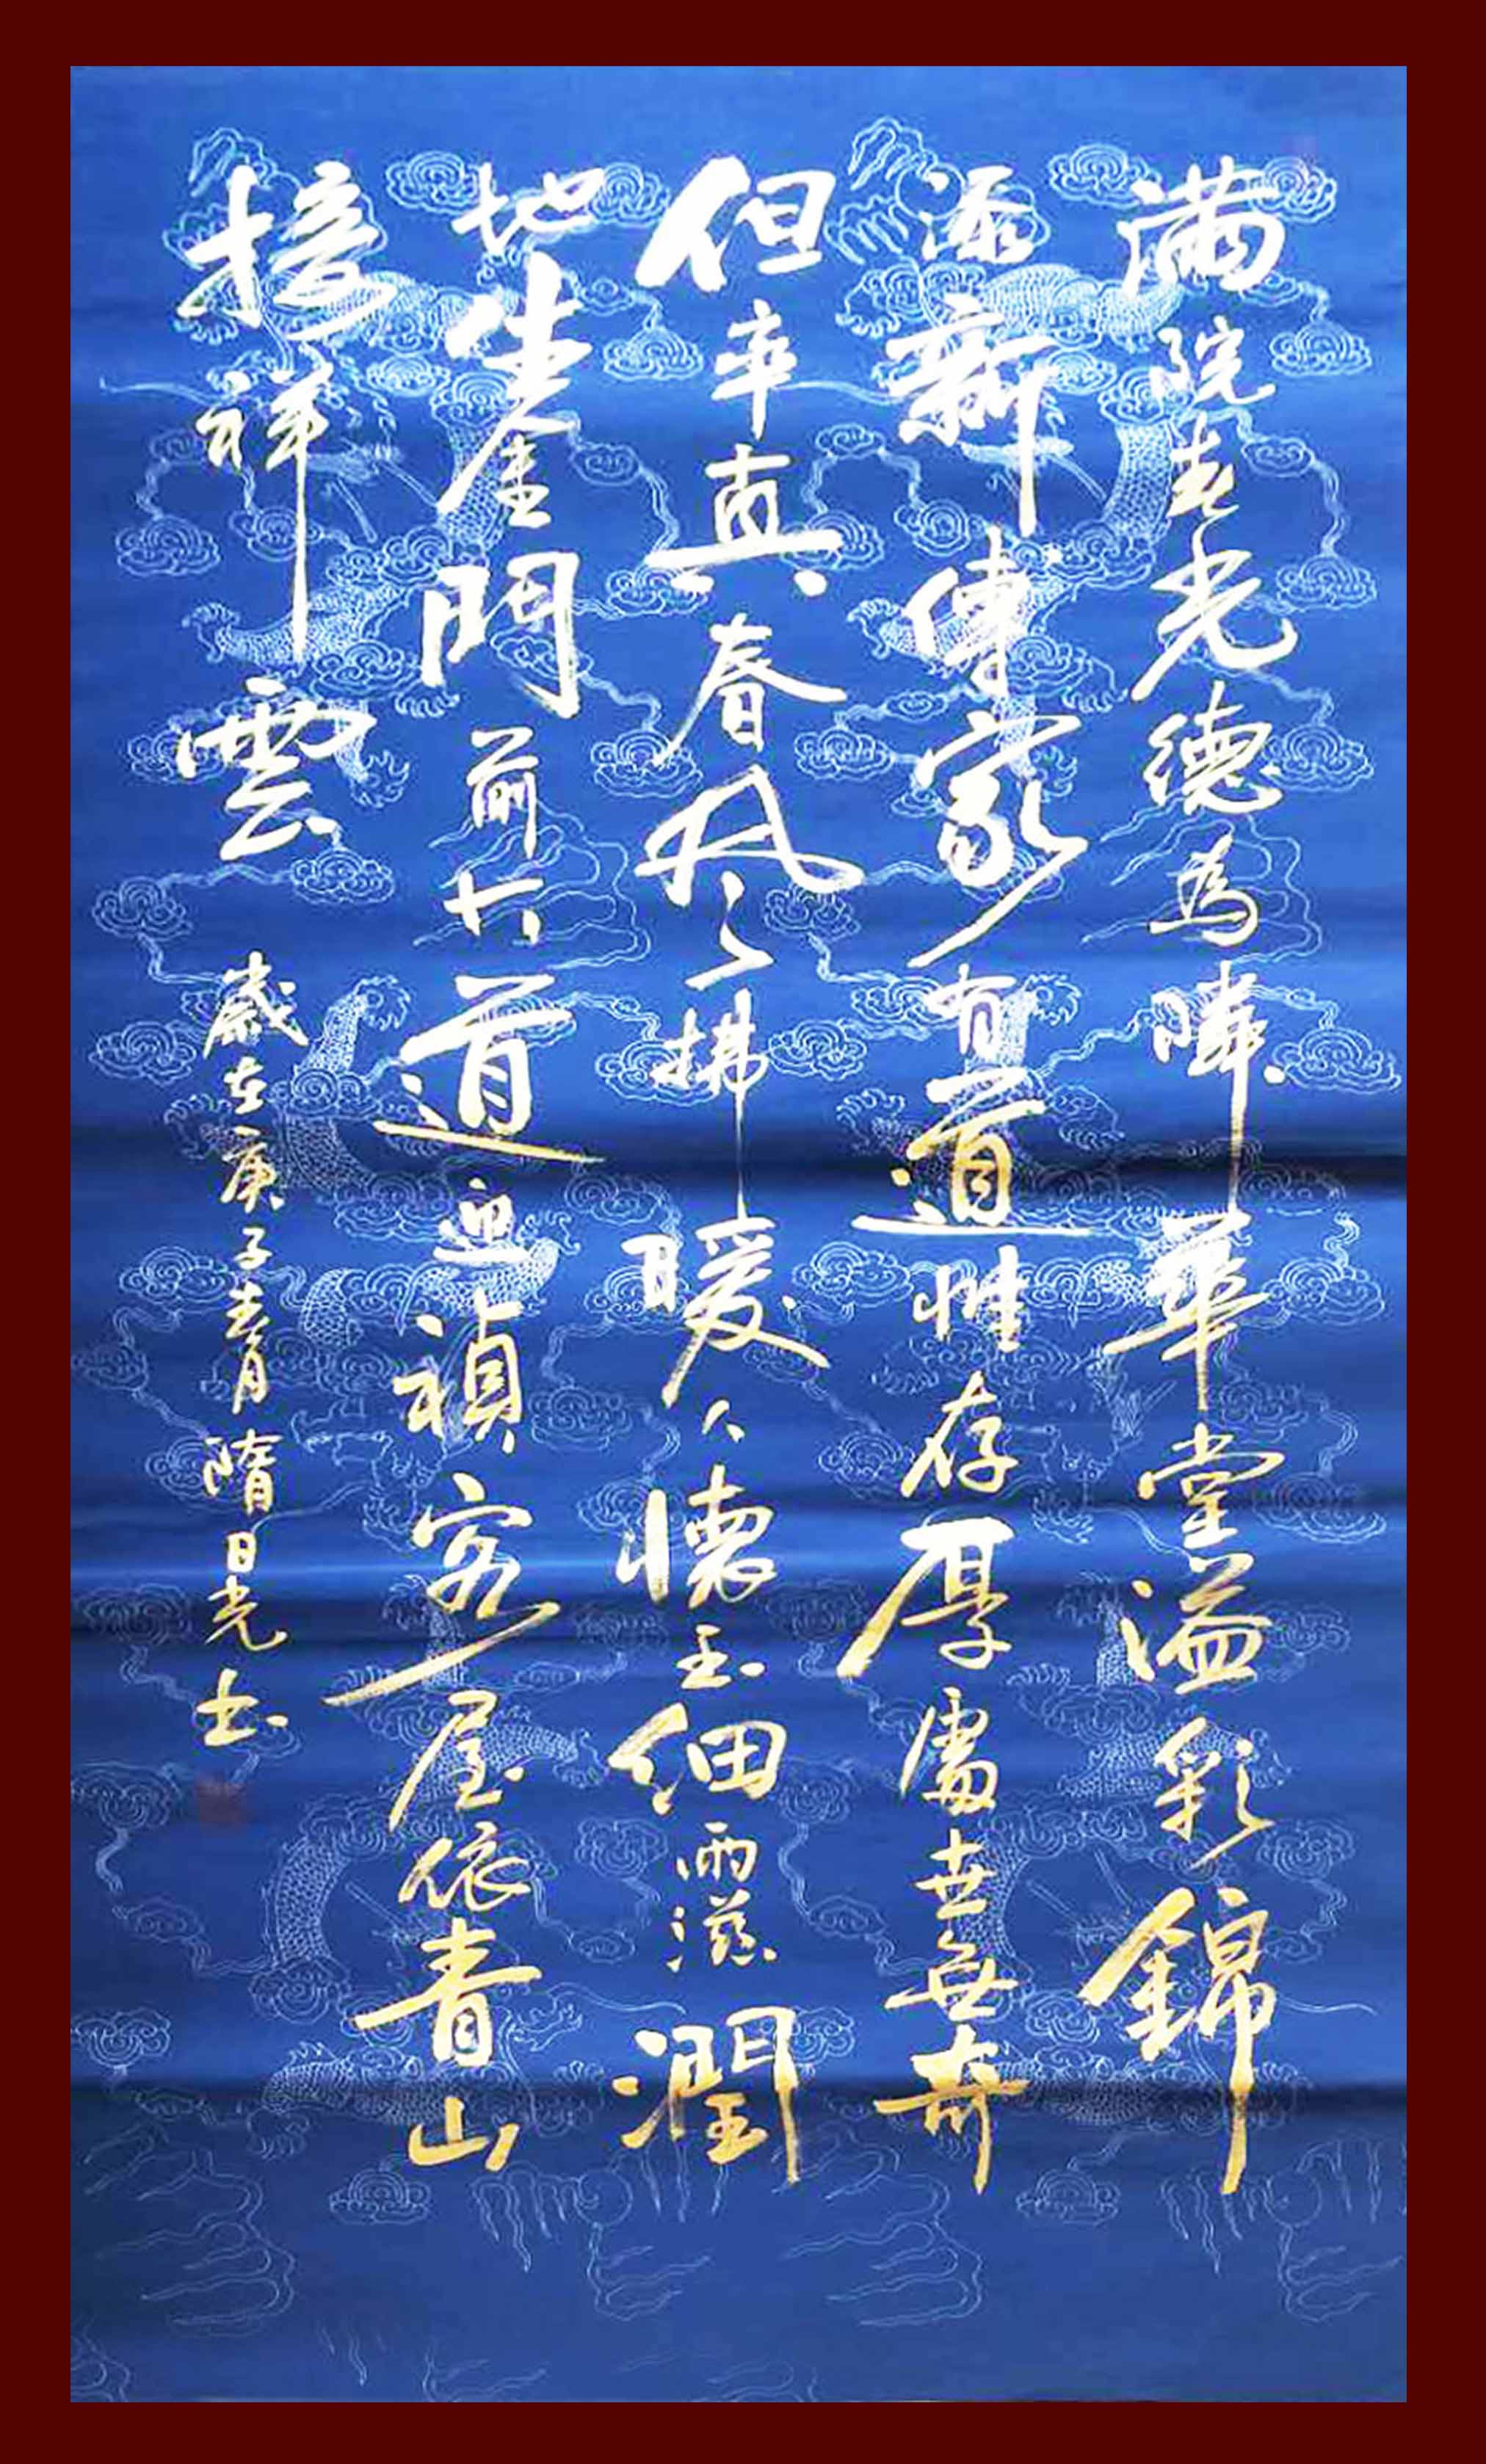 滿院春光德為暐華堂溢彩錦
添新傳家有道惟存厚處世無奇
但率真春風風拂暖人懷玉細雨滋潤
地生金門前大道迎禎客屋依青山
接祥雲
歲在庚子春月隋日光書